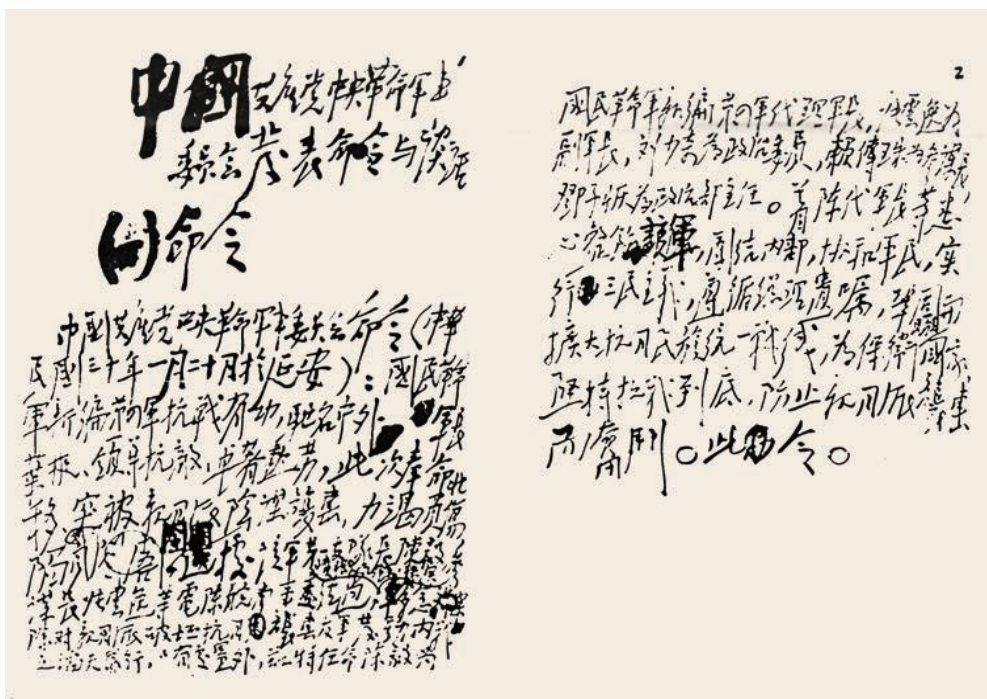 中國共產党中央革命軍事
委員会發表命令与談話
(一)命令
中國共產党中央革命軍事委員会命令(中華
民國三十年一月二十日於延安):國民革命
軍新編第四軍抗战有功,馳名中外。軍長
葉挺,領導抗敵,卓著勲劳,此次奉命北
移,突被亲日派陰謀襲击,力竭負傷,
陷身囹圄。迭據該軍第一支隊長陳毅、參
謀長張雲逸等電陳皖南事变經過,
除对亲日派破坏抗日、襲击友軍、發动內战
之滔天罪行,另有处置外,茲特任命陳毅为
2
國民革命軍新編第四軍代理軍長,張雲逸为
副軍長,刘少奇为政治委員,賴傳珠为參謀長,
鄧子恢为政治部主任。着陳代軍長等悉
心整飭該軍,團結內部,协和軍民,实
行三民主義,遵循総理遺嘱,鞏固而
擴大抗日民族統一战线,为保衛國家
堅持抗战到底,防止亲日派襲击
而奮鬥。此令。